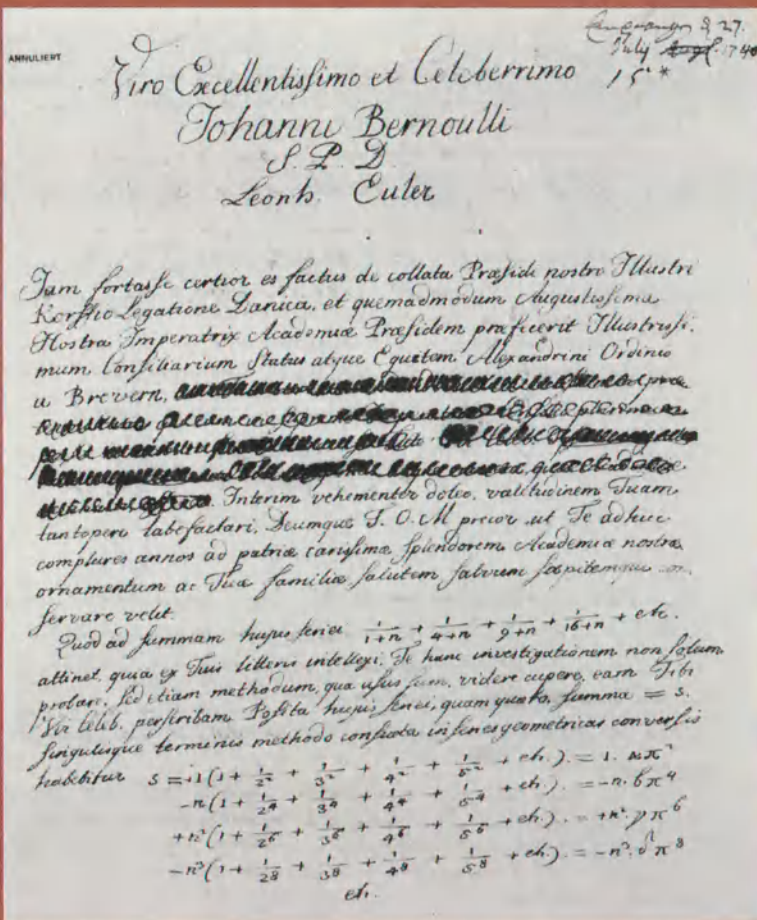 ANNULIERT
27.
July 1740
15 *
Viro Excellentissimo et Celeberrimo
Johanni Bernoulli
S. P. D.
Leonh. Euler
Jam fortasse certior es factus de collata Præsidi nostro Illustri
Korffio Legatione Danica, et quemadmodum Augustissima
Nostra Imperatrix Academiæ Præsidem præfecerit Illustrissi-
mum Consiliarium Status atque Equitem Alexandrini Ordinis
a Brevern,
Interim vehementer doleo, valetudinem Tuam
tantopere labefactari, Deumque T. O. M precor ut Te adhuc
complures annos ad patriæ carissimæ splendorem Academiæ nostræ
ornamentum ac Tuæ familiæ salutem salvum sospitemque con-
servare velit.
Quod ad summam hujus seriei 1/(1+n) + 1/(4+n) + 1/(9+n) + 1/(16+n) + etc.
attinet, quia ex Tuis litteris intellexi, Te hanc investigationem non solum
probare, sed etiam methodum, qua usus sum, videre cupere, eam Tibi
Vir Celeb. perscribam. Posita hujus seriei, quam quæro, summa = s.
singulisque terminis methodo consueta in series geometricas conversis
habebitur s = +1(1 + 1/2² + 1/3² + 1/4² + 1/5² + etc.) = 1. απ²
-n(1 + 1/2⁴ + 1/3⁴ + 1/4⁴ + 1/5⁴ + etc.) = -n. βπ⁴
+n²(1 + 1/2⁶ + 1/3⁶ + 1/4⁶ + 1/5⁶ + etc.) = +n². γπ⁶
-n³(1 + 1/2⁸ + 1/3⁸ + 1/4⁸ + 1/5⁸ + etc.) = -n³. δπ⁸
etc.